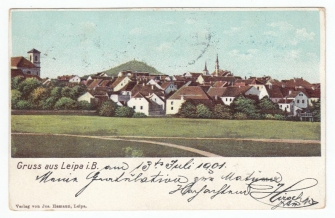 Gruss aus Leipa i.B. am 13ten Juli 1901.
Meine Gratulation zu Matura
Verlag von Jos. Hamann, Leipa.